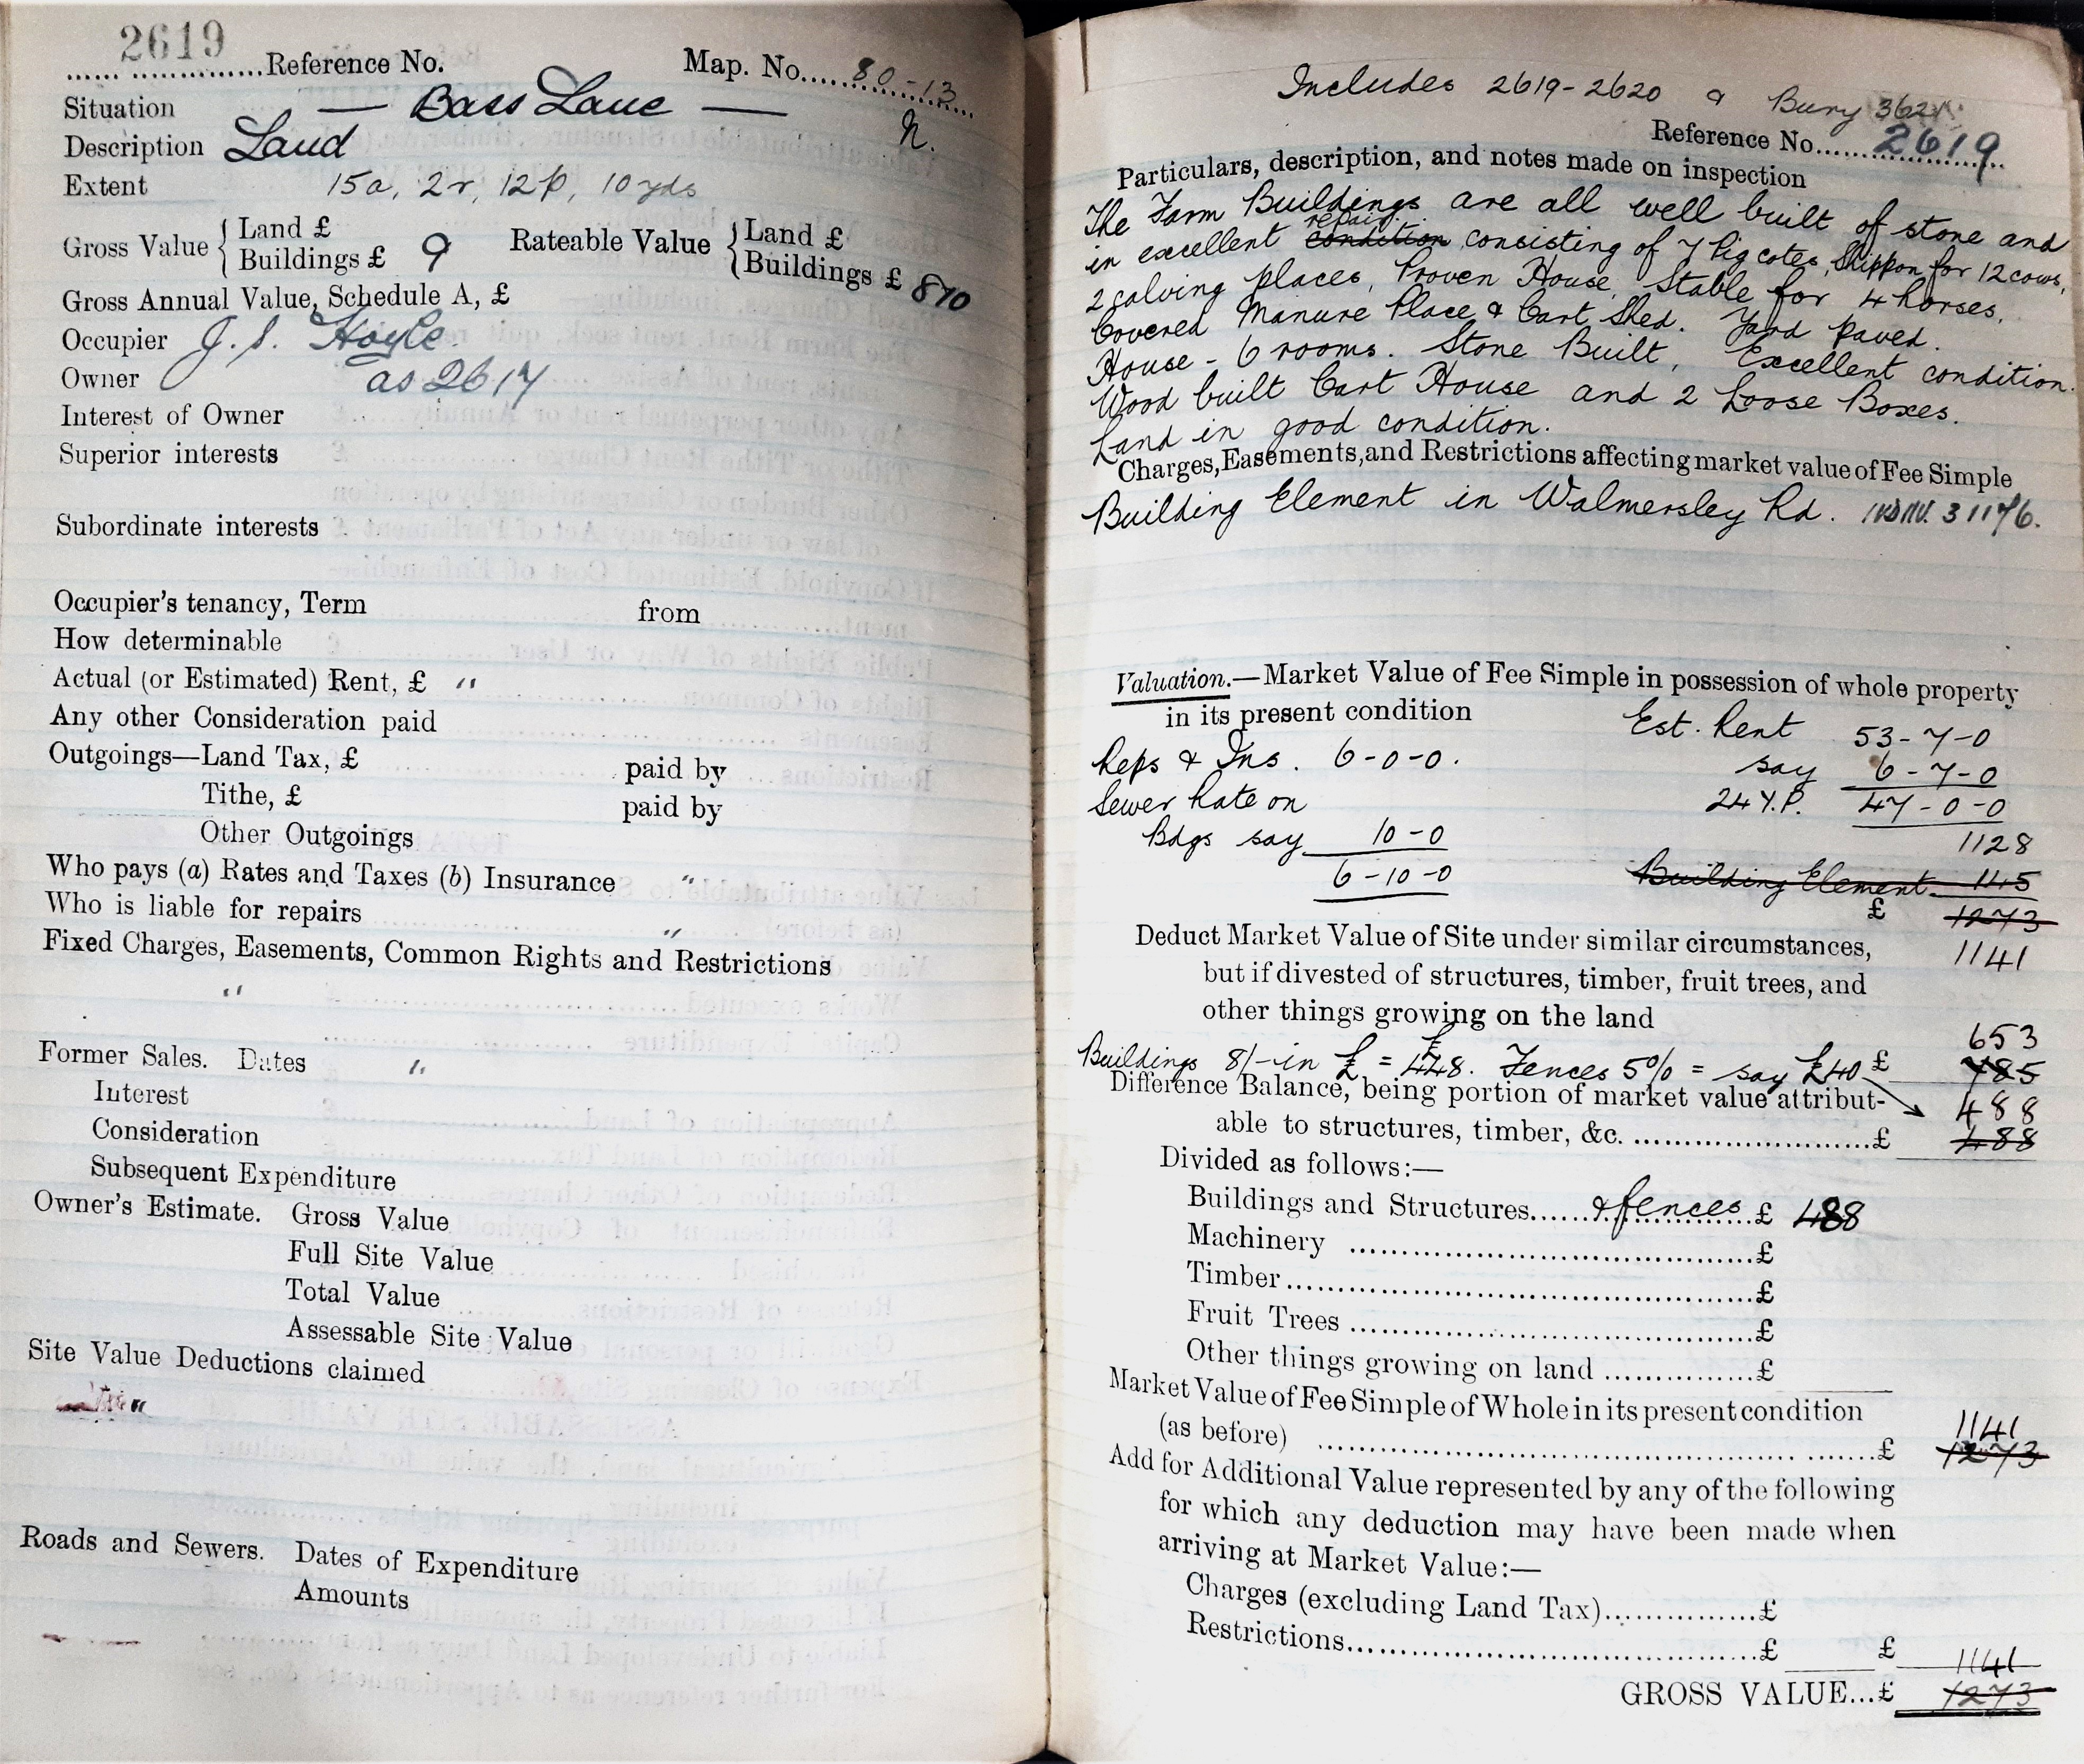 2619
Reference No. Map. No. 80-13
Situation — Bass Lane — N.
Description Land
Extent 15a, 2r, 12p, 10yds
Gross Value { Land £ Rateable Value { Land £
Buildings £ 9 Buildings £ 8/10
Gross Annual Value, Schedule A, £
Occupier J. S. Hoyle.
Owner as 2617
Interest of Owner
Superior interests
Subordinate interests
Occupier's tenancy, Term from
How determinable
Actual (or Estimated) Rent, £ "
Any other Consideration paid
Outgoings—Land Tax, £ paid by
Tithe, £ paid by
Other Outgoings
Who pays (a) Rates and Taxes (b) Insurance "
Who is liable for repairs "
Fixed Charges, Easements, Common Rights and Restrictions
"
Former Sales. Dates "
Interest
Consideration
Subsequent Expenditure
Owner's Estimate. Gross Value
Full Site Value
Total Value
Assessable Site Value
Site Value Deductions claimed
"
Roads and Sewers. Dates of Expenditure
Amounts
Includes 2619-2620 & Bury
Reference No. 2619
Particulars, description, and notes made on inspection
The Farm Buildings are all well built of stone and
in excellent condition repair consisting of 7 Pig cotes, Shippon for 12 cows,
2 calving places, Proven House, Stable for 4 horses.
Covered Manure Place & Cart Shed. Yard paved.
House - 6 rooms. Stone Built, Excellent condition.
Wood built Cart House and 2 Loose Boxes.
Land in good condition.
Charges, Easements, and Restrictions affecting market value of Fee Simple
Building Element in Walmersley Rd.
Valuation.—Market Value of Fee Simple in possession of whole property
in its present condition Est. Rent 53-7-0
Reps & Ins. 6-0-0. say 6-7-0
Sewer Rate on 24 Y.P. 47-0-0
Bdgs say 10-0 1128
6-10-0 Building Element 145
£ 1273
Deduct Market Value of Site under similar circumstances, 1141
but if divested of structures, timber, fruit trees, and
other things growing on the land 653
Buildings 8/- in £ = £448. Fences 5% = say £40 £ 785
Difference Balance, being portion of market value attribut- 488
able to structures, timber, &c. £ 488
Divided as follows:—
Buildings and Structures & fences £ 488
Machinery £
Timber £
Fruit Trees £
Other things growing on land £
Market Value of Fee Simple of Whole in its present condition 1141
(as before) £ 1273
Add for Additional Value represented by any of the following
for which any deduction may have been made when
arriving at Market Value:—
Charges (excluding Land Tax) £
Restrictions £ £ 1141
GROSS VALUE...£ 1273